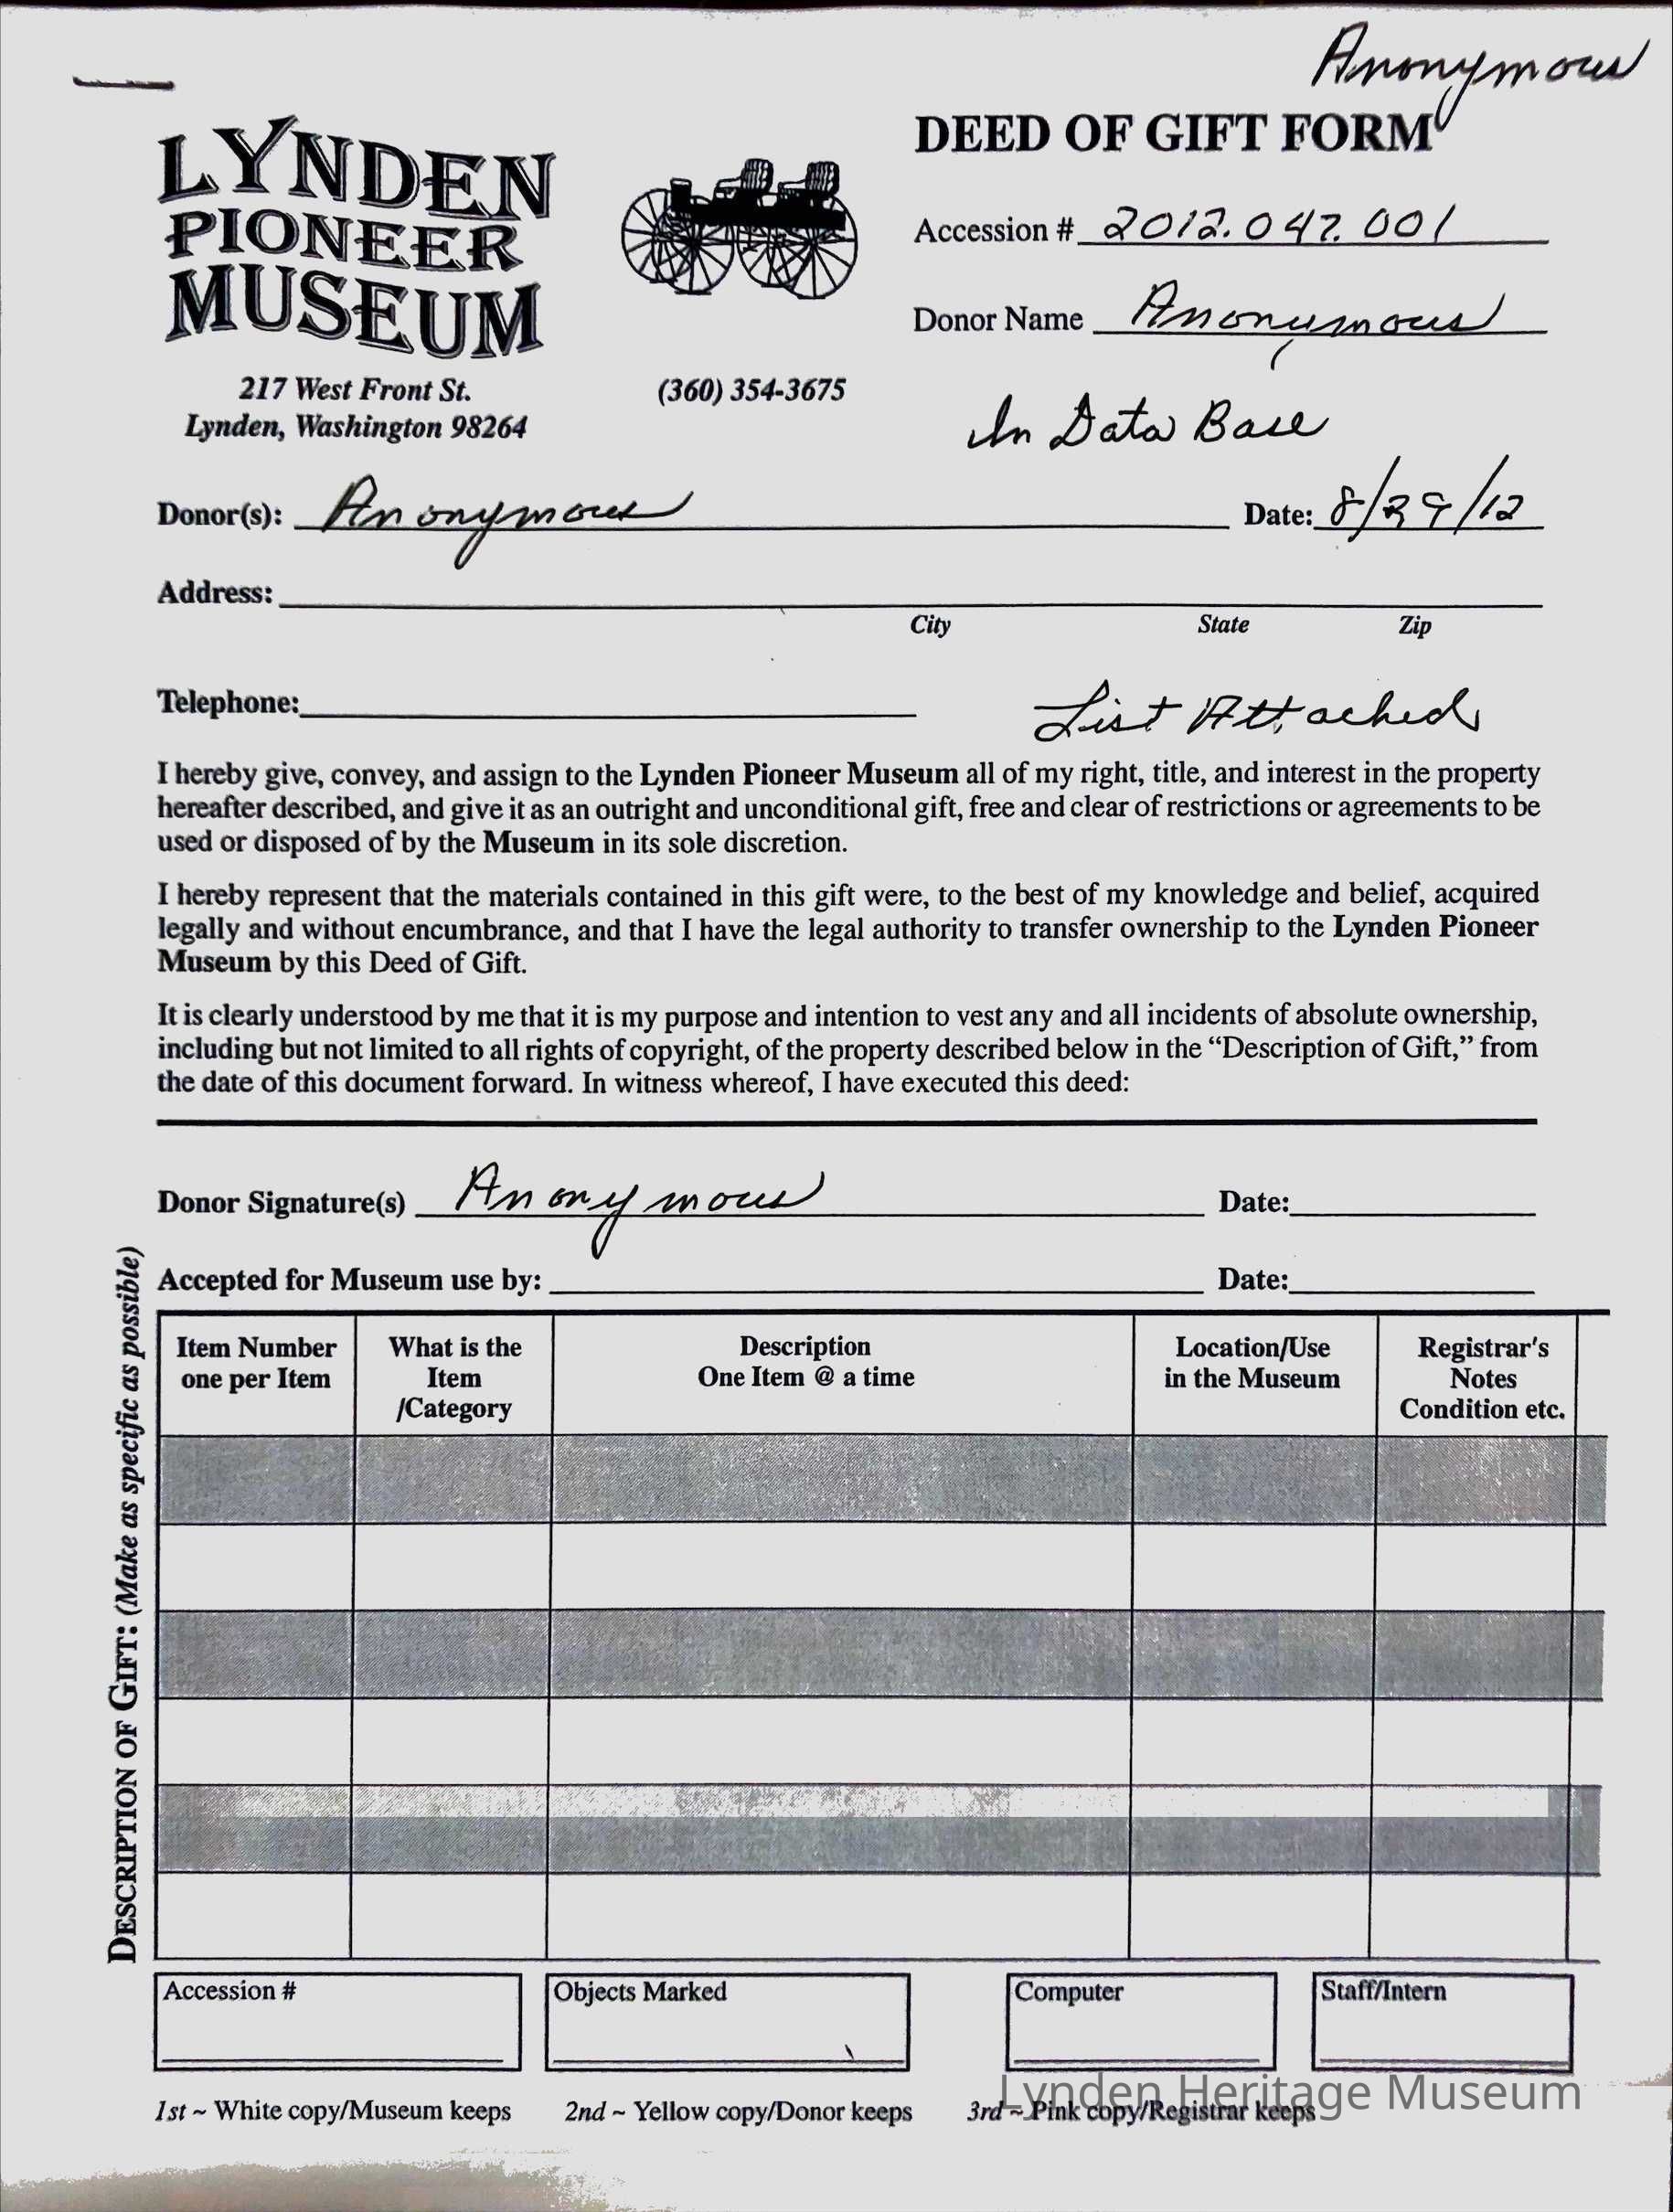 Anonymous
LYNDEN
PIONEER
MUSEUM
217 West Front St.
Lynden, Washington 98264
(360) 354-3675
DEED OF GIFT FORM
Accession # 2012.047.001
Donor Name Anonymous
In Data Base
Donor(s): Anonymous Date: 8/29/12
Address:
City State Zip
Telephone: List Attached
I hereby give, convey, and assign to the Lynden Pioneer Museum all of my right, title, and interest in the property
hereafter described, and give it as an outright and unconditional gift, free and clear of restrictions or agreements to be
used or disposed of by the Museum in its sole discretion.
I hereby represent that the materials contained in this gift were, to the best of my knowledge and belief, acquired
legally and without encumbrance, and that I have the legal authority to transfer ownership to the Lynden Pioneer
Museum by this Deed of Gift.
It is clearly understood by me that it is my purpose and intention to vest any and all incidents of absolute ownership,
including but not limited to all rights of copyright, of the property described below in the “Description of Gift,” from
the date of this document forward. In witness whereof, I have executed this deed:
Donor Signature(s) Anonymous Date:
Accepted for Museum use by: Date:
DESCRIPTION OF GIFT: (Make as specific as possible)
Item Number
one per Item
What is the
Item
/Category
Description
One Item @ a time
Location/Use
in the Museum
Registrar's
Notes
Condition etc.
Accession # Objects Marked Computer Staff/Intern
1st ~ White copy/Museum keeps 2nd ~ Yellow copy/Donor keeps 3rd ~ Pink copy/Registrar keeps
Lynden Heritage Museum